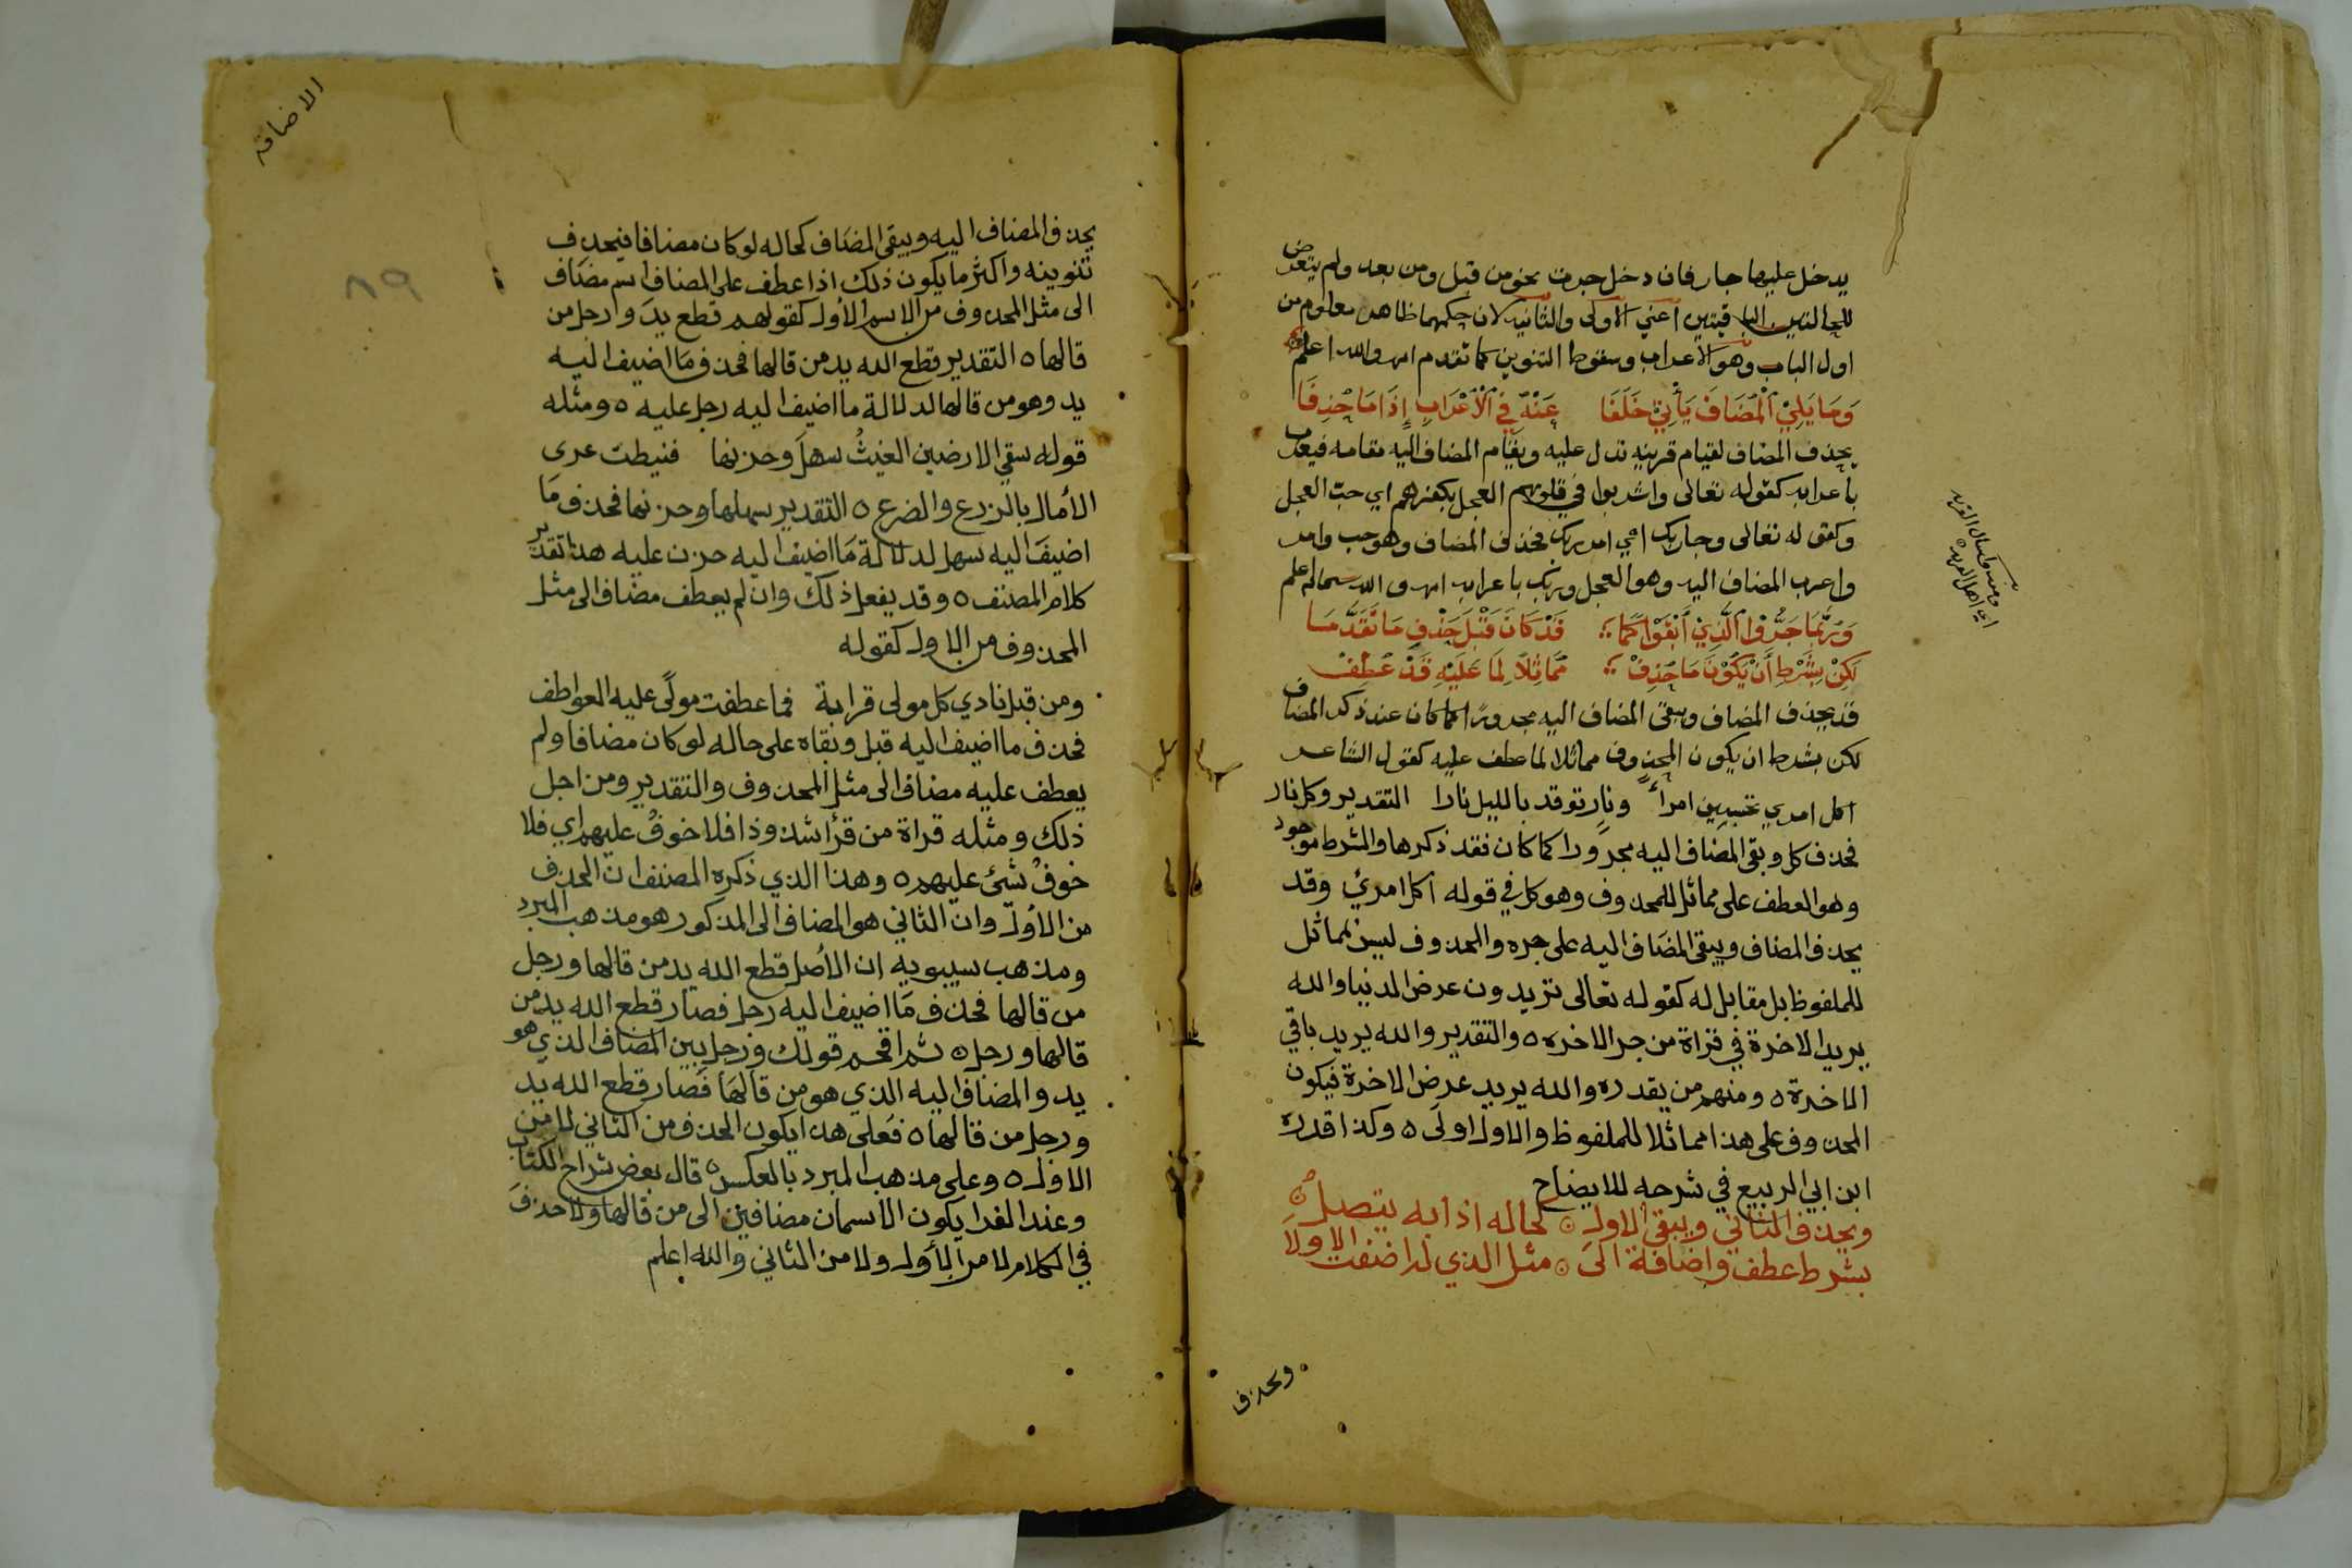 يدخل عليها جار فان دخل جرت نحو من قبل ومن بعد ولم يتعرض
للحالتين الباقيتين اعني الاولى والثانيه لان حكمهما ظاهر معلوم من
اول الباب وهو الاعراب وسقوط التنوين كما تقدم اهـ والله اعلم
وَمَا يَلِيْ الْمُضَافَ يَأْتِيْ خَلَفَا عَنْهُ فِي الْاَعْرَابِ إِذَا مَا حُذِفَا
يحذف المضاف لقيام قرينه تدل عليه ويقام المضاف اليه مقامه فيعرب
باعرابه كقوله تعالى واشربوا في قلوبهم العجل بكفرهم اي حب العجل
وكقوله تعالى وجا ربك اي امر ربك فحذف المضاف وهو حب وامر
واعرب المضاف اليه وهو العجل وربك باعرابه اهـ والله سبحانه اعلم
وَرُبَّمَا جَرُّوا الَّذِيْ أَبْقَوْا كَمَا قَدْ كَانَ قَبْلَ حَذْفِ مَا تَقَدَّمَا
لَكِنْ بِشَرْطِ أَنْ يَكُوْنَ مَا حُذِفْ مُمَاثِلاً لِمَا عَلَيْهِ قَدْ عُطِفْ
قد يحذف المضاف ويبقى المضاف اليه مجرورًا كما كان عند ذكر المضاف
لكن بشرط ان يكون المحذوف مماثلا لما عطف عليه كقول الشاعر
اكل امري تحسبين امراً ونارٍ توقد بالليل نارا التقدير وكل نار
فحذف كل وبقى المضاف اليه مجرورا كما كان فقد ذكرها والشرط موجود
وهو العطف على مماثل للمحذوف وهو كل في قوله اكل امرئ وقد
يحذف المضاف ويبقى المضاف اليه على جره والمحذوف ليس مماثل
للملفوظ بل مقابل له كقوله تعالى تريدون عرض الدنيا والله
يريد الاخرة في قراة من جر الاخره ٥ والتقدير والله يريد باقي
الاخرة ٥ ومنهم من يقدره والله يريد عرض الاخرة فيكون
المحذوف على هذا مماثلا للملفوظ والاول اولى ٥ وكذا قدره
ابن ابي الربيع في شرحه للايضاح
ويحذف الثاني ويبقى الاول كحاله اذا به يتصل
بشرط عطف واضافة الى مثل الذي له اضفت الاولا
ويحذف
الاضافة
٨٩
يحذف المضاف اليه ويبقى المضاف كحاله لو كان مضافا فيحذف
تنوينه واكثر ما يكون ذلك اذا عطف على المضاف اسم مضاف
الى مثل المحذوف من الاسم الاول كقولهم قطع يد وارجل من
قالها ٥ التقدير قطع الله يد من قالها فحذف ما اضيف اليه
يد وهو من قالها لدلالة ما اضيف اليه رجل عليه ٥ ومثله
قوله سقي الارضين الغيثُ سهلَ وحزنها فنيطت عرى
الأمال بالزرع والضرع ٥ التقدير سهلها وحزنها فحذف ما
اضيف اليه سهل لدلالة ما اضيف اليه حزن عليه هذا تقدير
كلام المصنف ٥ وقد يفعل ذلك وان لم يعطف مضاف الى مثل
المحذوف من الاول كقوله
ومن قبل نادي كل مولى قرابة فما عطفت مولًى عليه العواطف
فحذف ما اضيف اليه قبل وبقاه على حاله لو كان مضافا ولم
يعطف عليه مضاف الى مثل المحذوف والتقدير ومن اجل
ذلك ومثله قراة من قرأ شذوذا فلا خوفُ عليهم اي فلا
خوفُ شئ عليهم ٥ وهذا الذي ذكره المصنف ان الحذف
من الاول وان الثاني هو المضاف الى المذكور هو مذهب المبرد
ومذهب سيبويه ان الأصل قطع الله يد من قالها ورجل
من قالها فحذف ما اضيف اليه رجل فصار قطع الله يد من
قالها ورجل ٥ ثم اقحم قولك ورجل بين المضاف الذي هو
يد والمضاف اليه الذي هو من قالها فصار قطع الله يد
ورجل من قالها ٥ فعلى هذا يكون الحذف من الثاني لا من
الاول ٥ وعلى مذهب المبرد بالعكس ٥ قال بعض شراح الكتاب
وعند الفرا يكون الاسمان مضافين الى من قالها ولا حذف
في الكلام لا من الأول ولا من الثاني والله اعلم